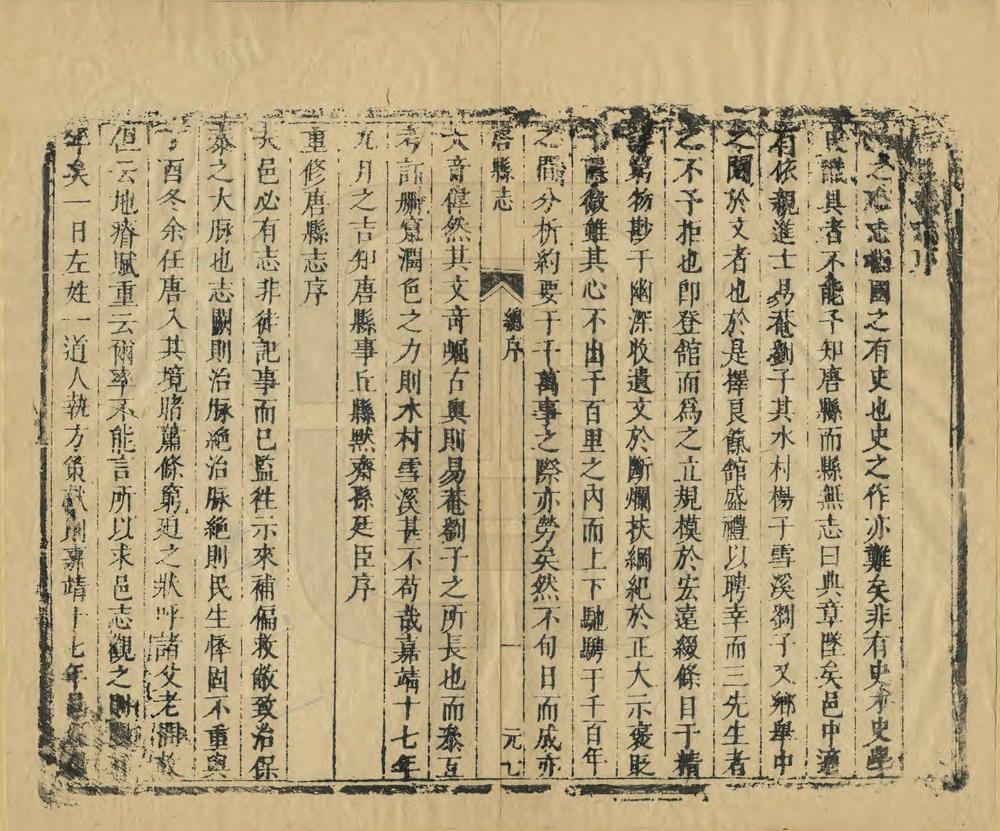 序
之有志猶國之有史也史之作亦難矣非有史才史學
史識其者不能予知唐縣而縣無志曰典章墜矣邑中適
有依親進士易菴劉子其水村楊子雪溪劉子又鄉舉中
之聞於文者也於是擇良飭館盛禮以聘幸而三先生者
之不予拒也卽登館而爲之立規模於宏遠綴條目于精
窮物勘于幽深收遺文於斷爛扶綱紀於正大示褒貶
于微雖其心不出千百里之内而上下馳騁于千百年
之間分析約要于千萬事之際亦勞矣然不旬日而成亦
唐縣志
總序
一
元七
大奇偉然其文奇崛古奧則易菴劉子之所長也而叅互
考訂刪窳潤色之力則水村雪溪甚不苟哉嘉靖十七年
九月之吉知唐縣事丘縣默齋孫廷臣序
重修唐縣志序
夫邑必有志非徒記事而已監徃示來補偏救敝致治保
泰之大脉也志闕則治脉絶治脉絶則民生悴固不重與
酉冬余任唐入其境睹蕭條窮廹之狀呼諸父老
但云地瘠賦重云爾率不能言所以求邑志觀之則
年矣一日左姓一道人執方策獻則嘉靖十七年邑